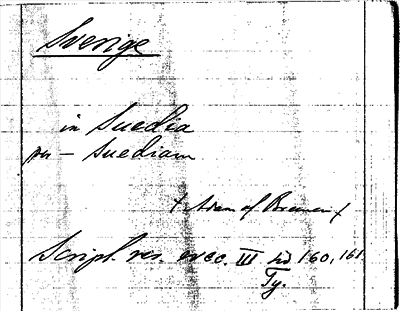 Sverige
in Suedia
per - Suediam
( Adam of Bremen )
Script. res. svec. III sid 160, 161
Ty.